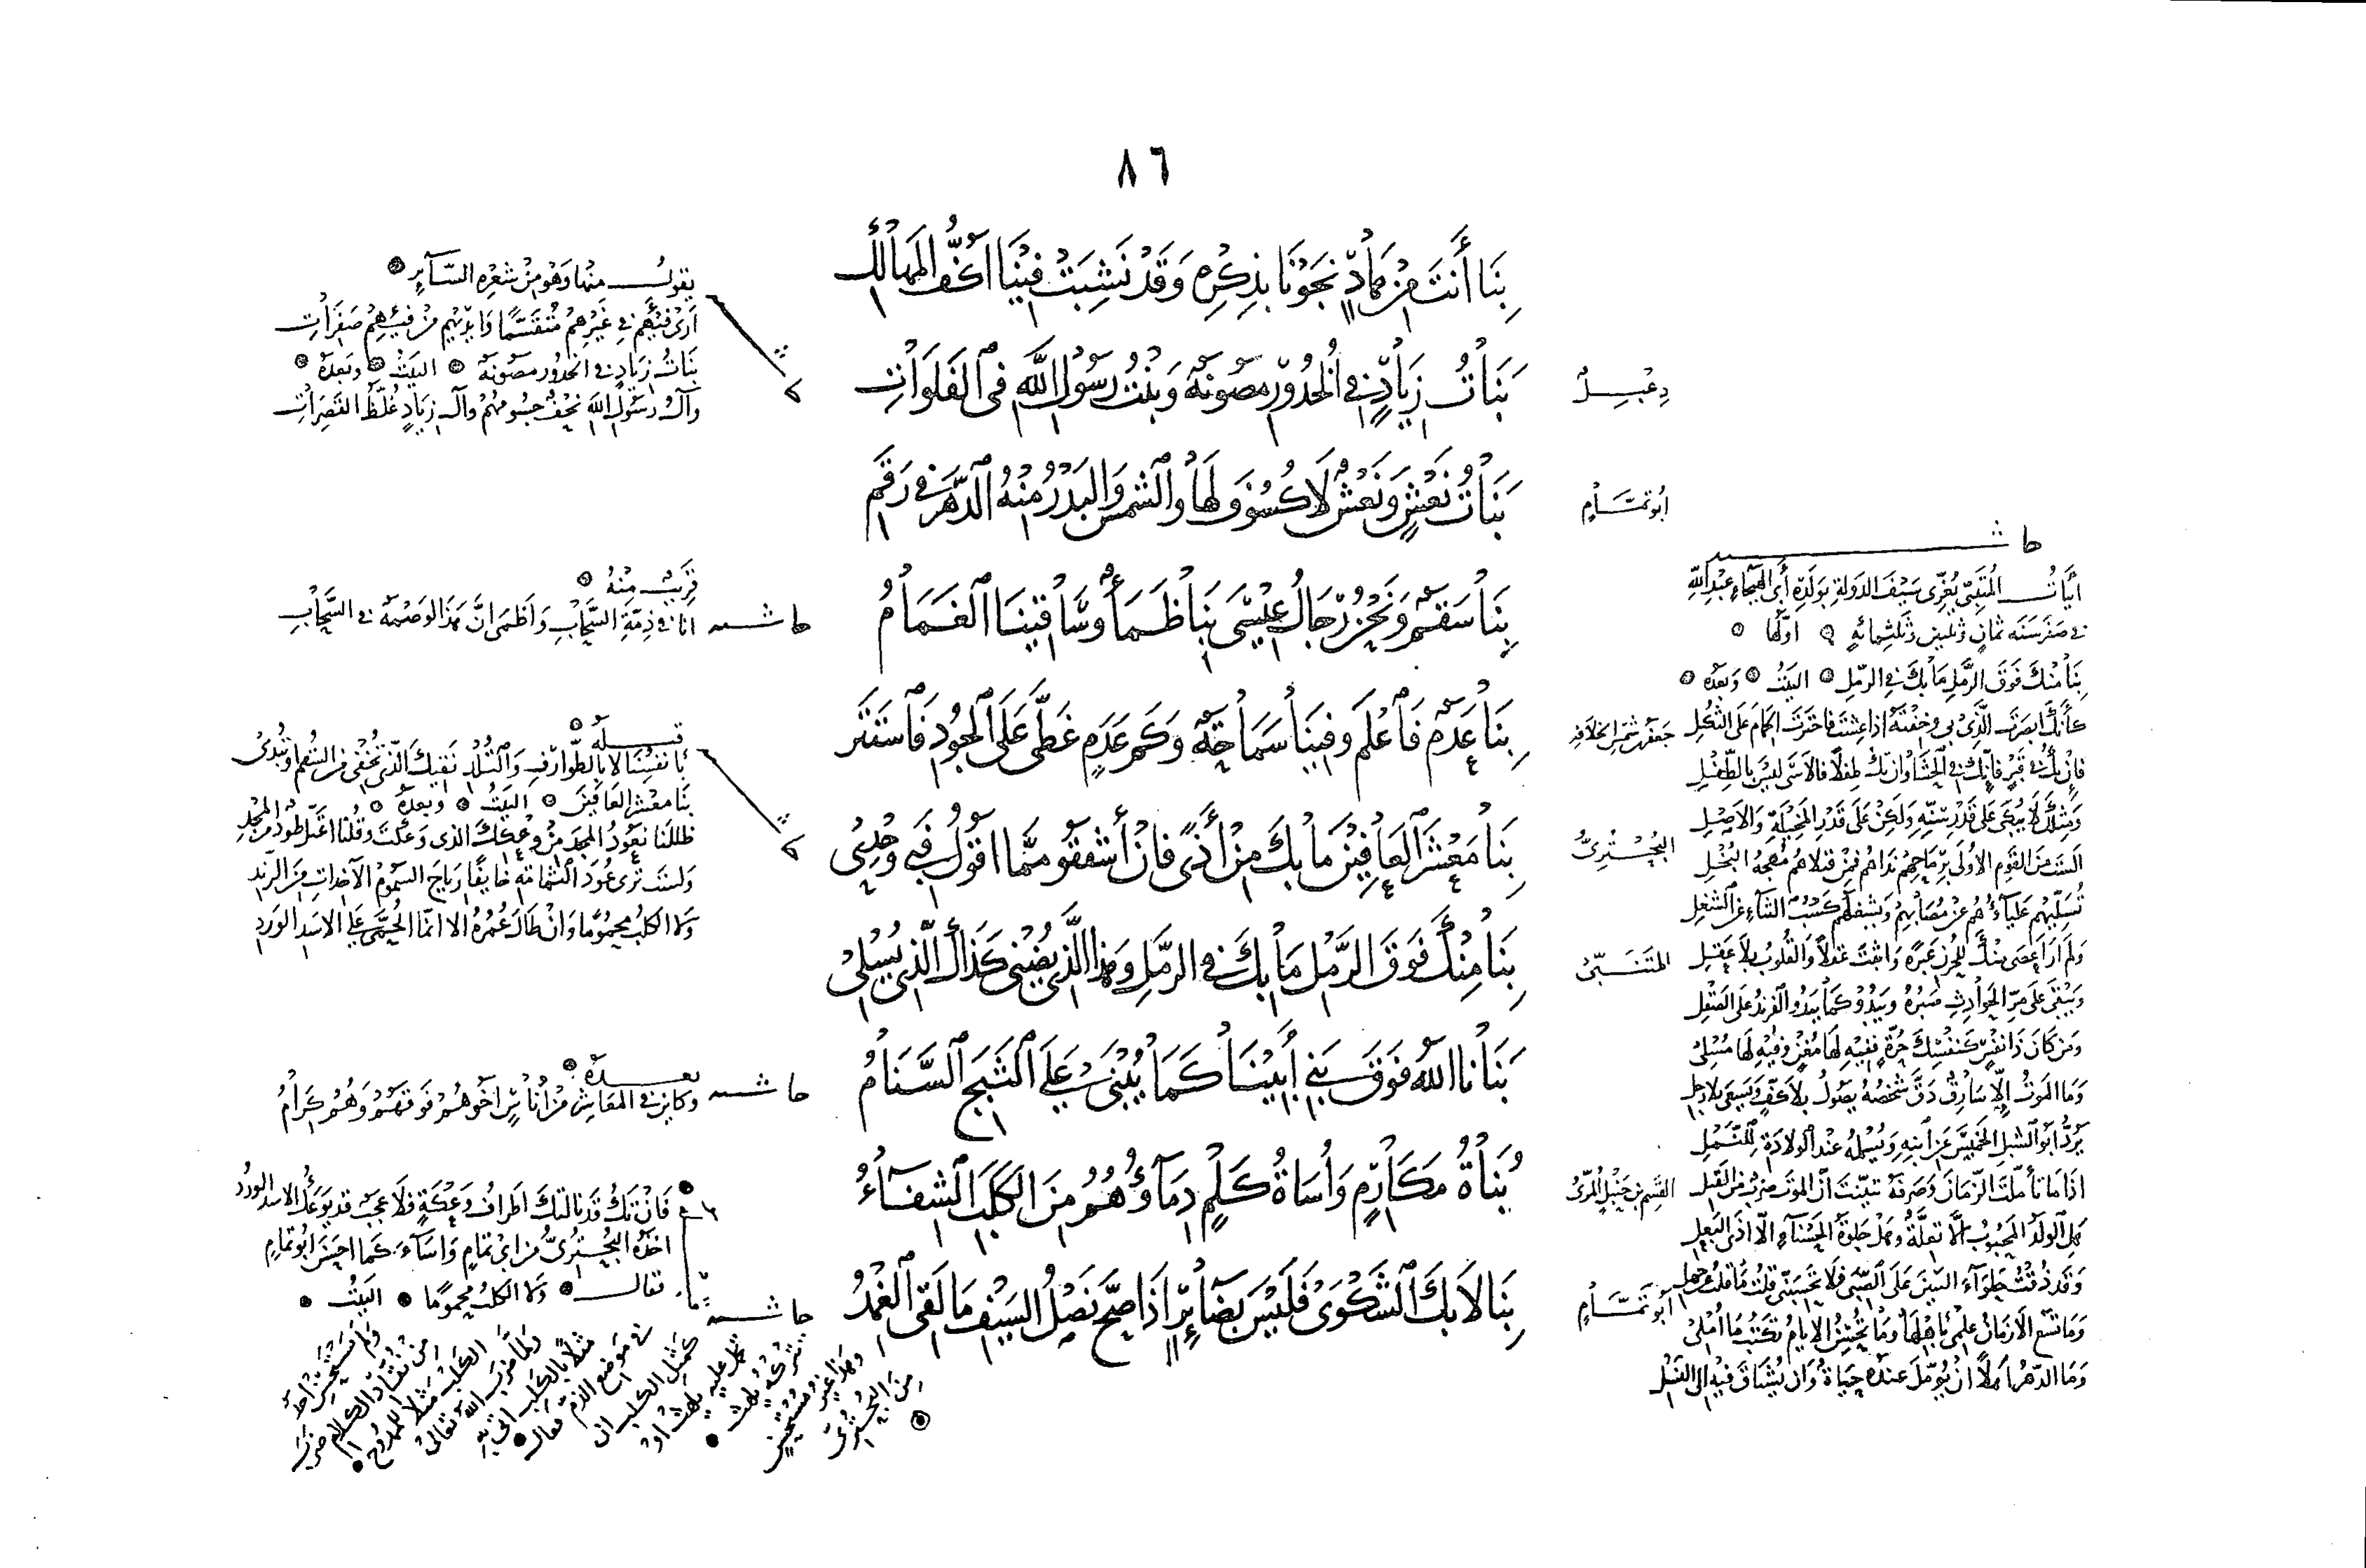 ٨٦
بِنَا أَنتَ مِن جَادٍ نَجَوْنَا بِذِكرِهِ وَقَدْ نَشِبَتْ فِيْنَا أَكُفُّ المَهَالِكِ
دِعْبِلٌ
بَنَاتُ زِيَادٍ فِي الخُدُورِ مَصُونَةٌ وَبِنْتُ رَسُولِ اللَّهِ فِي الفَلَوَاتِ
أبُو تَمَّامٍ
بَنَاتُ نَعْشٍ وَنَعْشٌ لَا كُسُوفَ لَهَا وَالشَّمسُ وَالبَدرُ مِنْهُ الدَّهرَ فِي رَقَمِ
بِنَا سَقَمٌ وَنَحْنُ رِجَالُ عِيْسَى بِنَا ظَمَأٌ وَسَاقِينَا الغَمَامُ
جَعفَر شَمسِ الخلَافَةِ
بِنَا عَدَمٌ فَاعْلَم وَفِينَا سَمَاحَةٌ وَكَم عَدَمٍ غَطَّى عَلَى الجُودِ فَاستَتَر
البُحْتُرِيُّ
بِنَا مَعْشَرَ العَافِيْنَ مَا بِكَ مِنْ أَذًى فَإِنْ أَشفَقُوا مِمَّا أَقُولُ فَبِي وَحْدِي
المُتَنَبِّي
بِنَا مِنْكَ فَوْقَ الرَّمْلِ مَا بِكَ فِي الرَّمْلِ وَهَذَا الَّذِي يُضْنِي كَذَاكَ الَّذِي يُبْلِي
بَنَانَا اللَّهُ فَوْقَ بَنِي أَبِيْنَا كَمَا يُبْنَى عَلَى الثَّبَجِ السَّنَامُ
القَسمُ بنُ حَنْبَلٍ المُرِّيُّ
بُنَاةُ مَكَارِمٍ وَأُسَاةُ كَلْمٍ دِمَاؤُهُمُ مِنَ الكَلَبِ الشِّفَاءُ
أبُو تَمَّامٍ
بِنَا لَا بِكَ الشَّكْوَى فَلَيْسَ بِضَائِرٍ إِذَا صَحَّ نَصْلُ السَّيْفِ مَا لَقِيَ الغِمْدُ
حاشية
أبيَاتُ المُتَنَبِّي يُعَزِّي سَيْفَ الدَولَةِ بِوَلَدِهِ أَبِي الهَيْجَاءِ عَبْدِ اللَّهِ
فِي صَفَر سَنَةَ ثَمَانٍ وَثَلثِينَ وَثَلثِمائَةٍ أوَّلُهَا
بِنَا مِنْكَ فَوْقَ الرَّمْلِ مَا بِكَ فِي الرَّمْلِ البَيْتُ وَبَعْدَهُ
كَأَنَّكَ أَبْصَرتَ الَّذِي بِي وَخِفْتَهُ إِذَا عِشْتَ فَاختَرتَ الحِمَامَ عَلَى الثُّكْلِ
فَإِن تَكُ فِي قَبْرٍ فَإِنَّكَ فِي الحَشَا وَإِن تَكُ طِفْلًا فَالأَسَى لَيْسَ بِالطِّفْلِ
وَمِثْلُكَ لَا يُبْكَى عَلَى قَدْرِ سِنِّهِ وَلَكِنْ عَلَى قَدْرِ المَخِيْلَةِ وَالأَصْلِ
أَلَسْتَ مِنَ القَومِ الأُولَى مِن رِمَاحِهِم نَدَاهُم وَمِنْ قَتلَاهُم مُهجَةُ البُخْلِ
تُسَلِّيهِم عَلْيَاؤُهُم عَن مُصَابِهِم وَيَشْغَلُهُم كَسْبُ الثَّنَاءِ عَنِ الشُّغْلِ
وَلَم أَرَ أَعصَى مِنْكَ لِلحُزنِ عَبْرَةً وَأَثْبَتَ عَقلًا وَالقُلُوبُ بِلَا عَقلِ
وَيَبْقَى عَلَى مَرِّ الحَوَادِثِ صَبْرُهُ وَيَبْدُو كَمَا يَبْدُو الفِرِندُ عَلَى الصَّقْلِ
وَمَن كَانَ ذَا نَفْسٍ كَنَفْسِكَ حُرَّةٍ فَفِيْهِ لَهَا مُغْنٍ وَفِيْهِ لَهَا مُسْلِي
وَمَا المَوتُ إِلَّا سَارِقٌ دَقَّ شَخْصُهُ يَصُولُ بِلَا كَفٍّ وَيَسْعَى بِلَا رِجلِ
يَرُدُّ أَبُو الشِّبْلِ الخَمِيسَ عَنِ ابْنِهِ وَيُسْلِمُهُ عِنْدَ الوِلَادَةِ لِلنَّمْلِ
إِذَا مَا تَأَمَّلتَ الزَّمَانَ وَصَرفَهُ تَبَيَّنْتَ أَنَّ المَوتَ ضَربٌ مِنَ القَتلِ
هَلِ الوَلَدُ المَحبُوبُ إِلَّا تَعِلَّةٌ وَهَل خَلوَةُ الحَسْنَاءِ إِلَّا أَذَى البَعلِ
وَقَد ذُقتُ حَلوَاءَ البَنِينَ عَلَى الصِّبَى فَلَا تَحسَبَنِّي قُلتُ مَا قُلتُ عَن جَهلِ
وَمَا تَسَعُ الأَزمَانُ عِلْمِي بِأَهلِهَا وَمَا تُحْسِنُ الأَيَّامُ تَكتُبُ مَا أُمْلِي
وَمَا الدَّهرُ أَهلًا أَنْ يُؤَمَّلَ عِنْدَهُ حَيَاةٌ وَأَن يُشتَاقَ فِيهِ إِلَى النَّسْلِ
يَقُولُ مِنْهَا وَهُوَ مِنْ شِعْرِهِ السَّائِرِ
أَرَى فَيْئَهُم فِي غَيْرِهِم مُتَقَسَّمًا وَأَيْدِيَهُم مِن فَيْئِهِم صَفِرَاتِ
بَنَاتُ زِيَادٍ فِي الخُدُورِ مَصُونَةٌ البَيْتُ وَبَعْدَهُ
وَآلُ رَسُولِ اللَّهِ نُحْفٌ جُسُومُهُمْ وَآلُ زِيَادٍ غُلَّظُ القَصَرَاتِ
قَرِيْبٌ مِنْهُ
حاشية أَنَا فِي ذِمَّةِ السَّحَابِ وَأَظمَى إِنَّ هَذَا لَوَصْمَةٌ فِي السَّحَابِ
قَبْلَهُ
بِأَنفُسِنَا لَا بِالطَّوَارِفِ وَالتُّلْدِ نَقِيكَ الَّذِي تُخْفِي مِنَ السُّقمِ أَو تُبْدِي
بِنَا مَعْشَرَ العَافِيْنَ البَيْتُ وَبَعْدَهُ
ظَلِلْنَا نَعُودُ المَجدَ مِنْ وَعْكِكَ الَّذِي وُعِكتَ وَقُلْنَا اعْتَلَّ طَودٌ مِنَ المَجْدِ
وَلَسْتَ تَرَى عُودَ الثُّمَامَةِ خَائِفًا رِيَاحَ السَّمُومِ الآخِذَاتِ مِنَ الرَّنْدِ
وَلَا الكَلبُ مَحمُومًا وَإِنْ طَالَ عُمْرُهُ أَلَا إِنَّمَا الحُمَّى عَلَى الأَسَدِ الوَرْدِ
بَعْدَهُ
حاشية وَكَائِن فِي المَعَاشِرِ مِنْ أُنَاسٍ أَخُوهُمْ فَوْقَهُم وَهُمُ كِرَامُ
فَإِنْ تَكُ قَد نَالَتكَ أَطرَافُ وَعْكَةٍ فَلَا عَجَبٌ قَد يُوعَكُ الأَسَدُ الوَردُ
أَخَذَهُ البُحْتُرِيُّ مِن أَبِي تَمَّامٍ وَأَسَاءَ كَمَا أَحسَنَ أبُو تَمَّامٍ
فَقَالَ وَلَا الكَلبُ مَحمُومًا البَيْتُ
حاشية
وَلَم يَستَحْسِنْ أحَدٌ
مِن نُقَّادِ الكَلَامِ ضَربَ
الكَلْبِ مَثَلًا لِلمَمدُوحِ
وَلَمَّا ضَرَبَ اللَّهُ تَعَالَى
مَثَلًا بِالكَلبِ أتَى بِهِ
فِي مَوْضِعِ الذَّمِّ فَقَالَ
كَمَثَلِ الكَلبِ إن
تَحمِل عَلَيهِ يَلهَث أو
تَترُكهُ يَلهَث
وَهَذَا غَيرُ مُستَحْسَنٍ
مِنَ البُحْتُرِيِّ